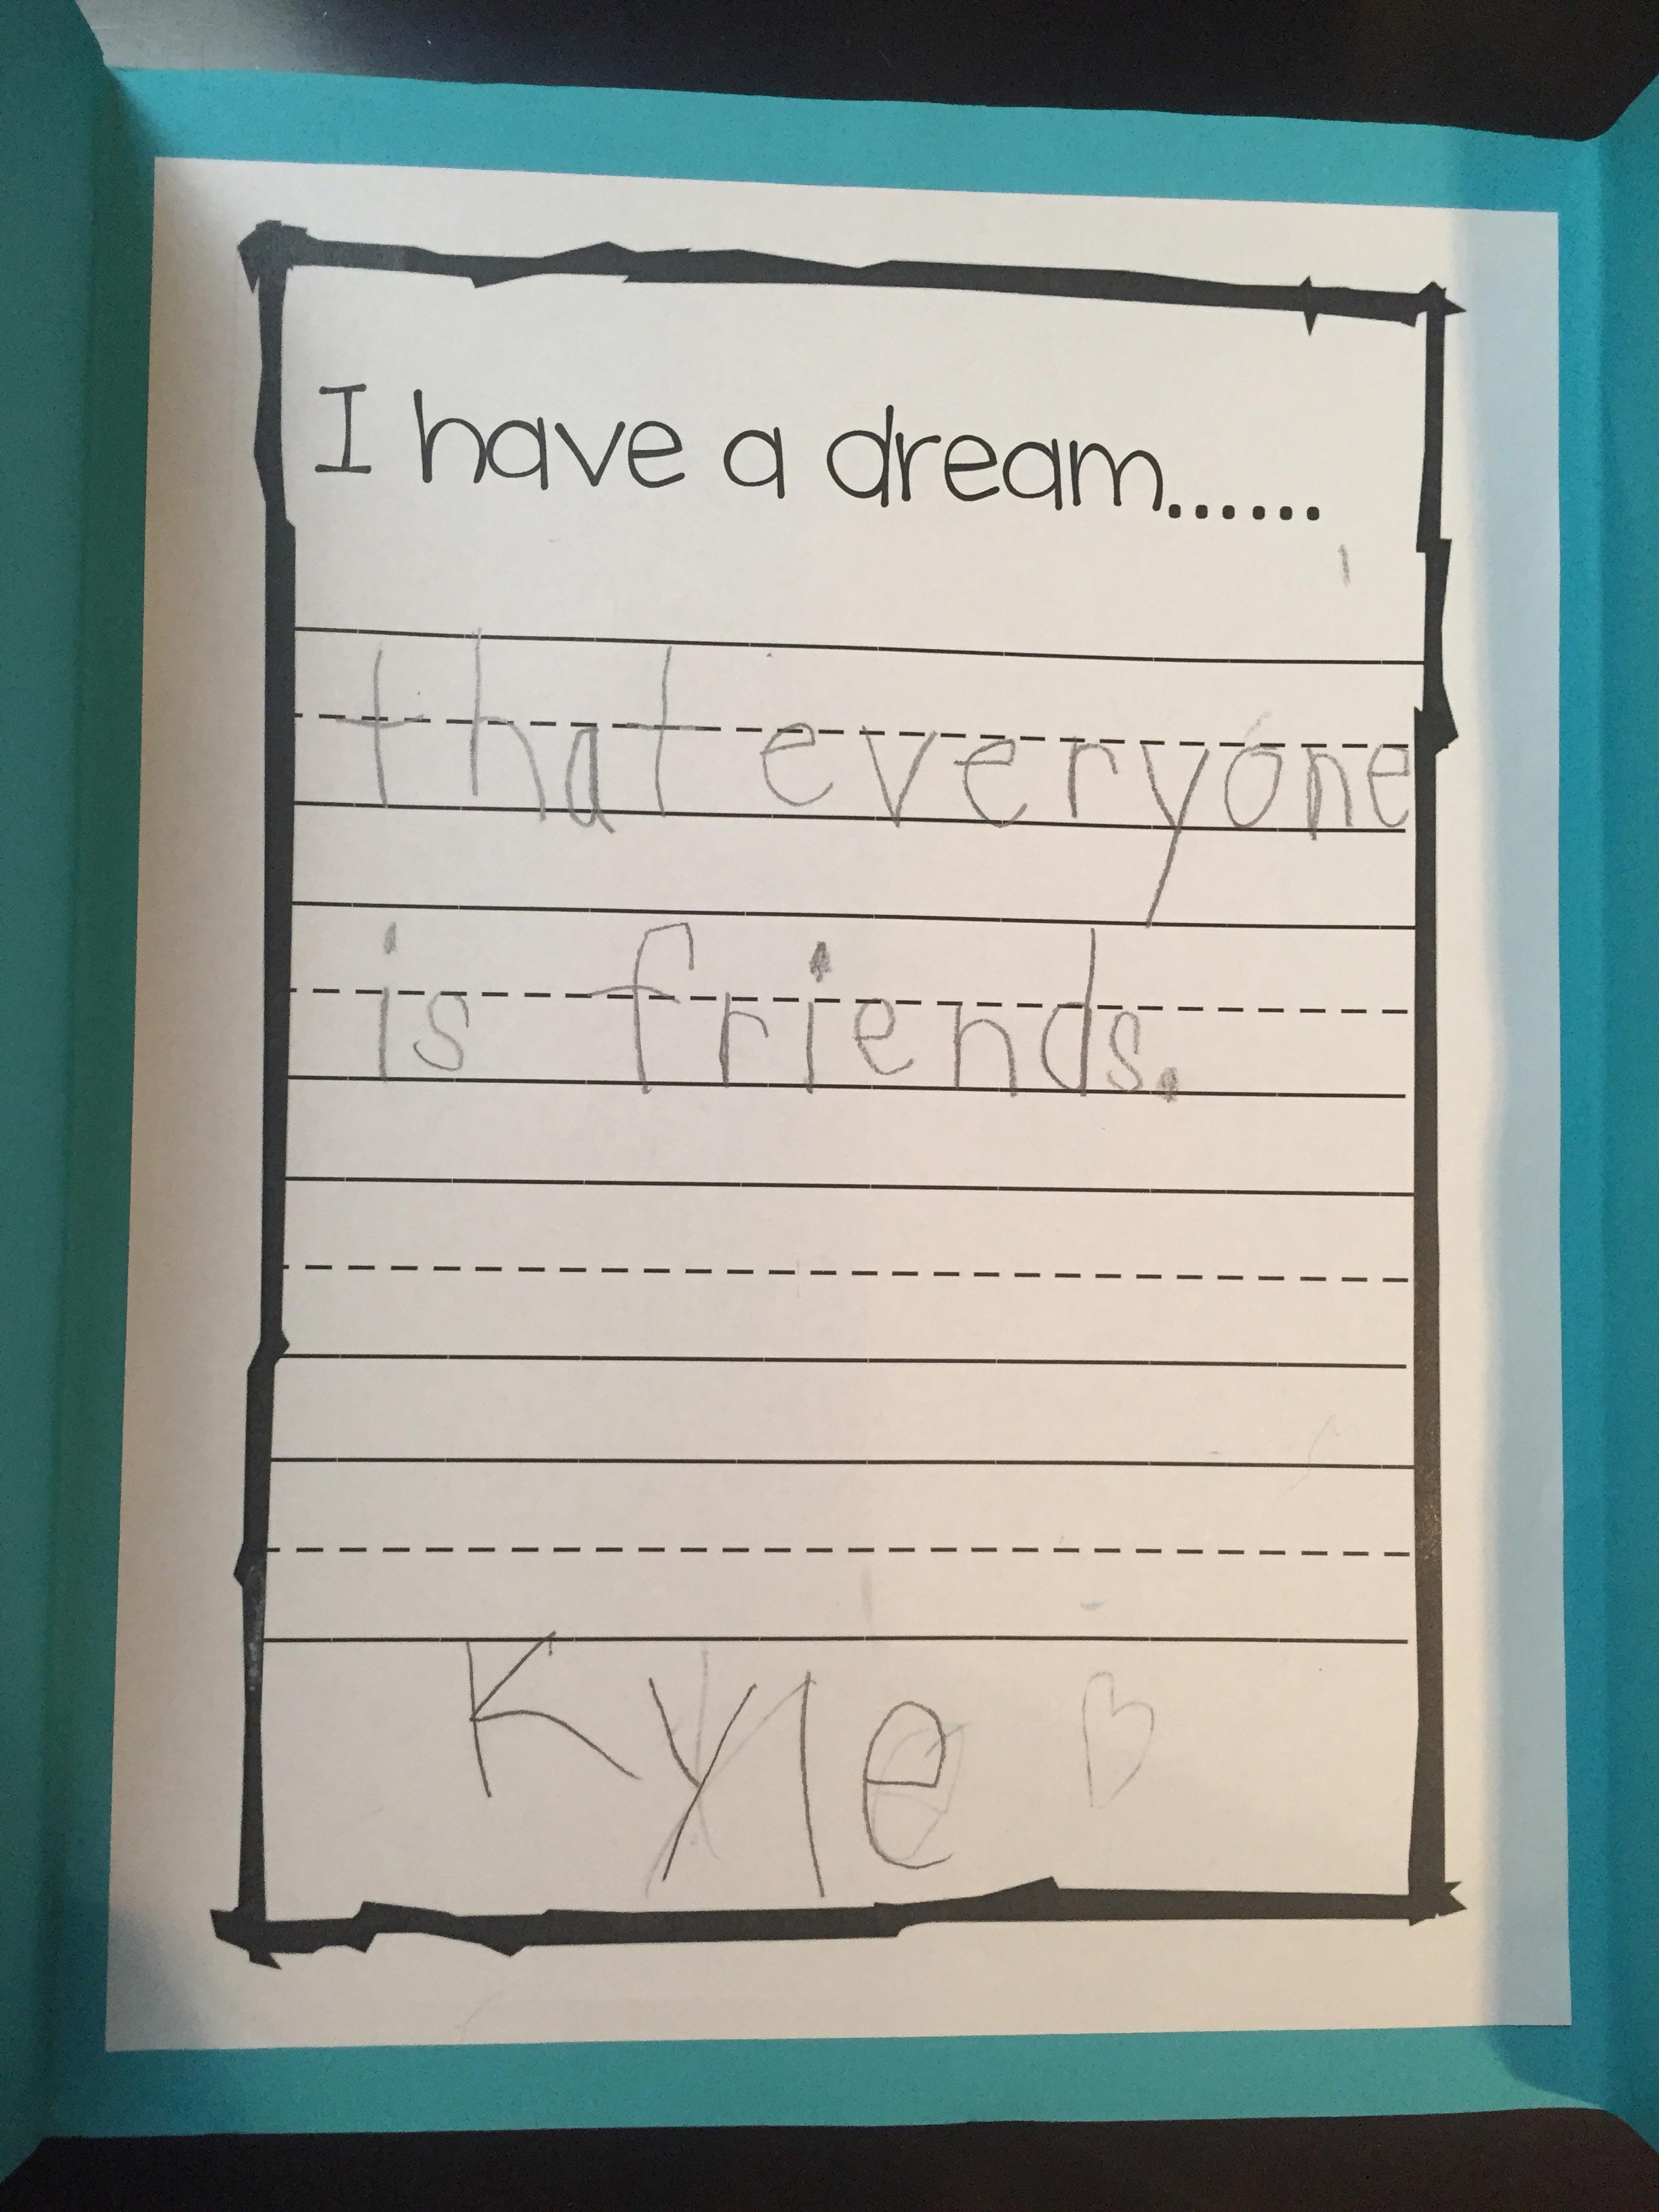 I have a dream......
that everyone
is friends.
Kyle